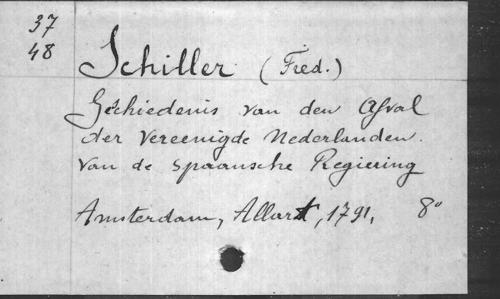 37
48
Schiller (Fred.)
Geschiedenis van den Afval
der Vereenigde Nederlanden.
van de Spaansche Regiering
Amsterdam, Allart, 1791, 8°